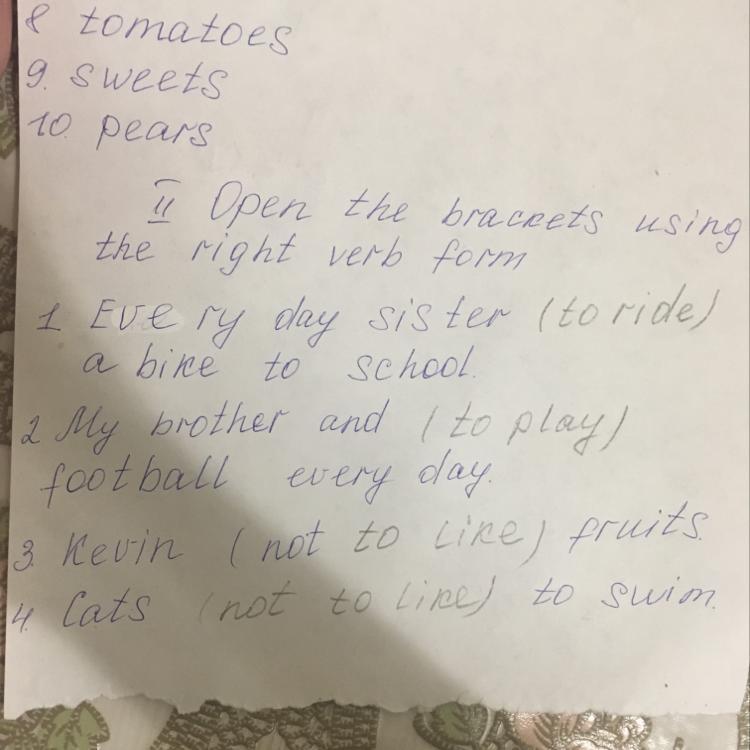 8 tomatoes
9. sweets
10. pears
II Open the brackets using
the right verb form
1. Every day sister (to ride)
a bike to school.
2. My brother and (to play)
football every day.
3. Kevin (not to like) fruits.
4. Cats (not to like) to swim.